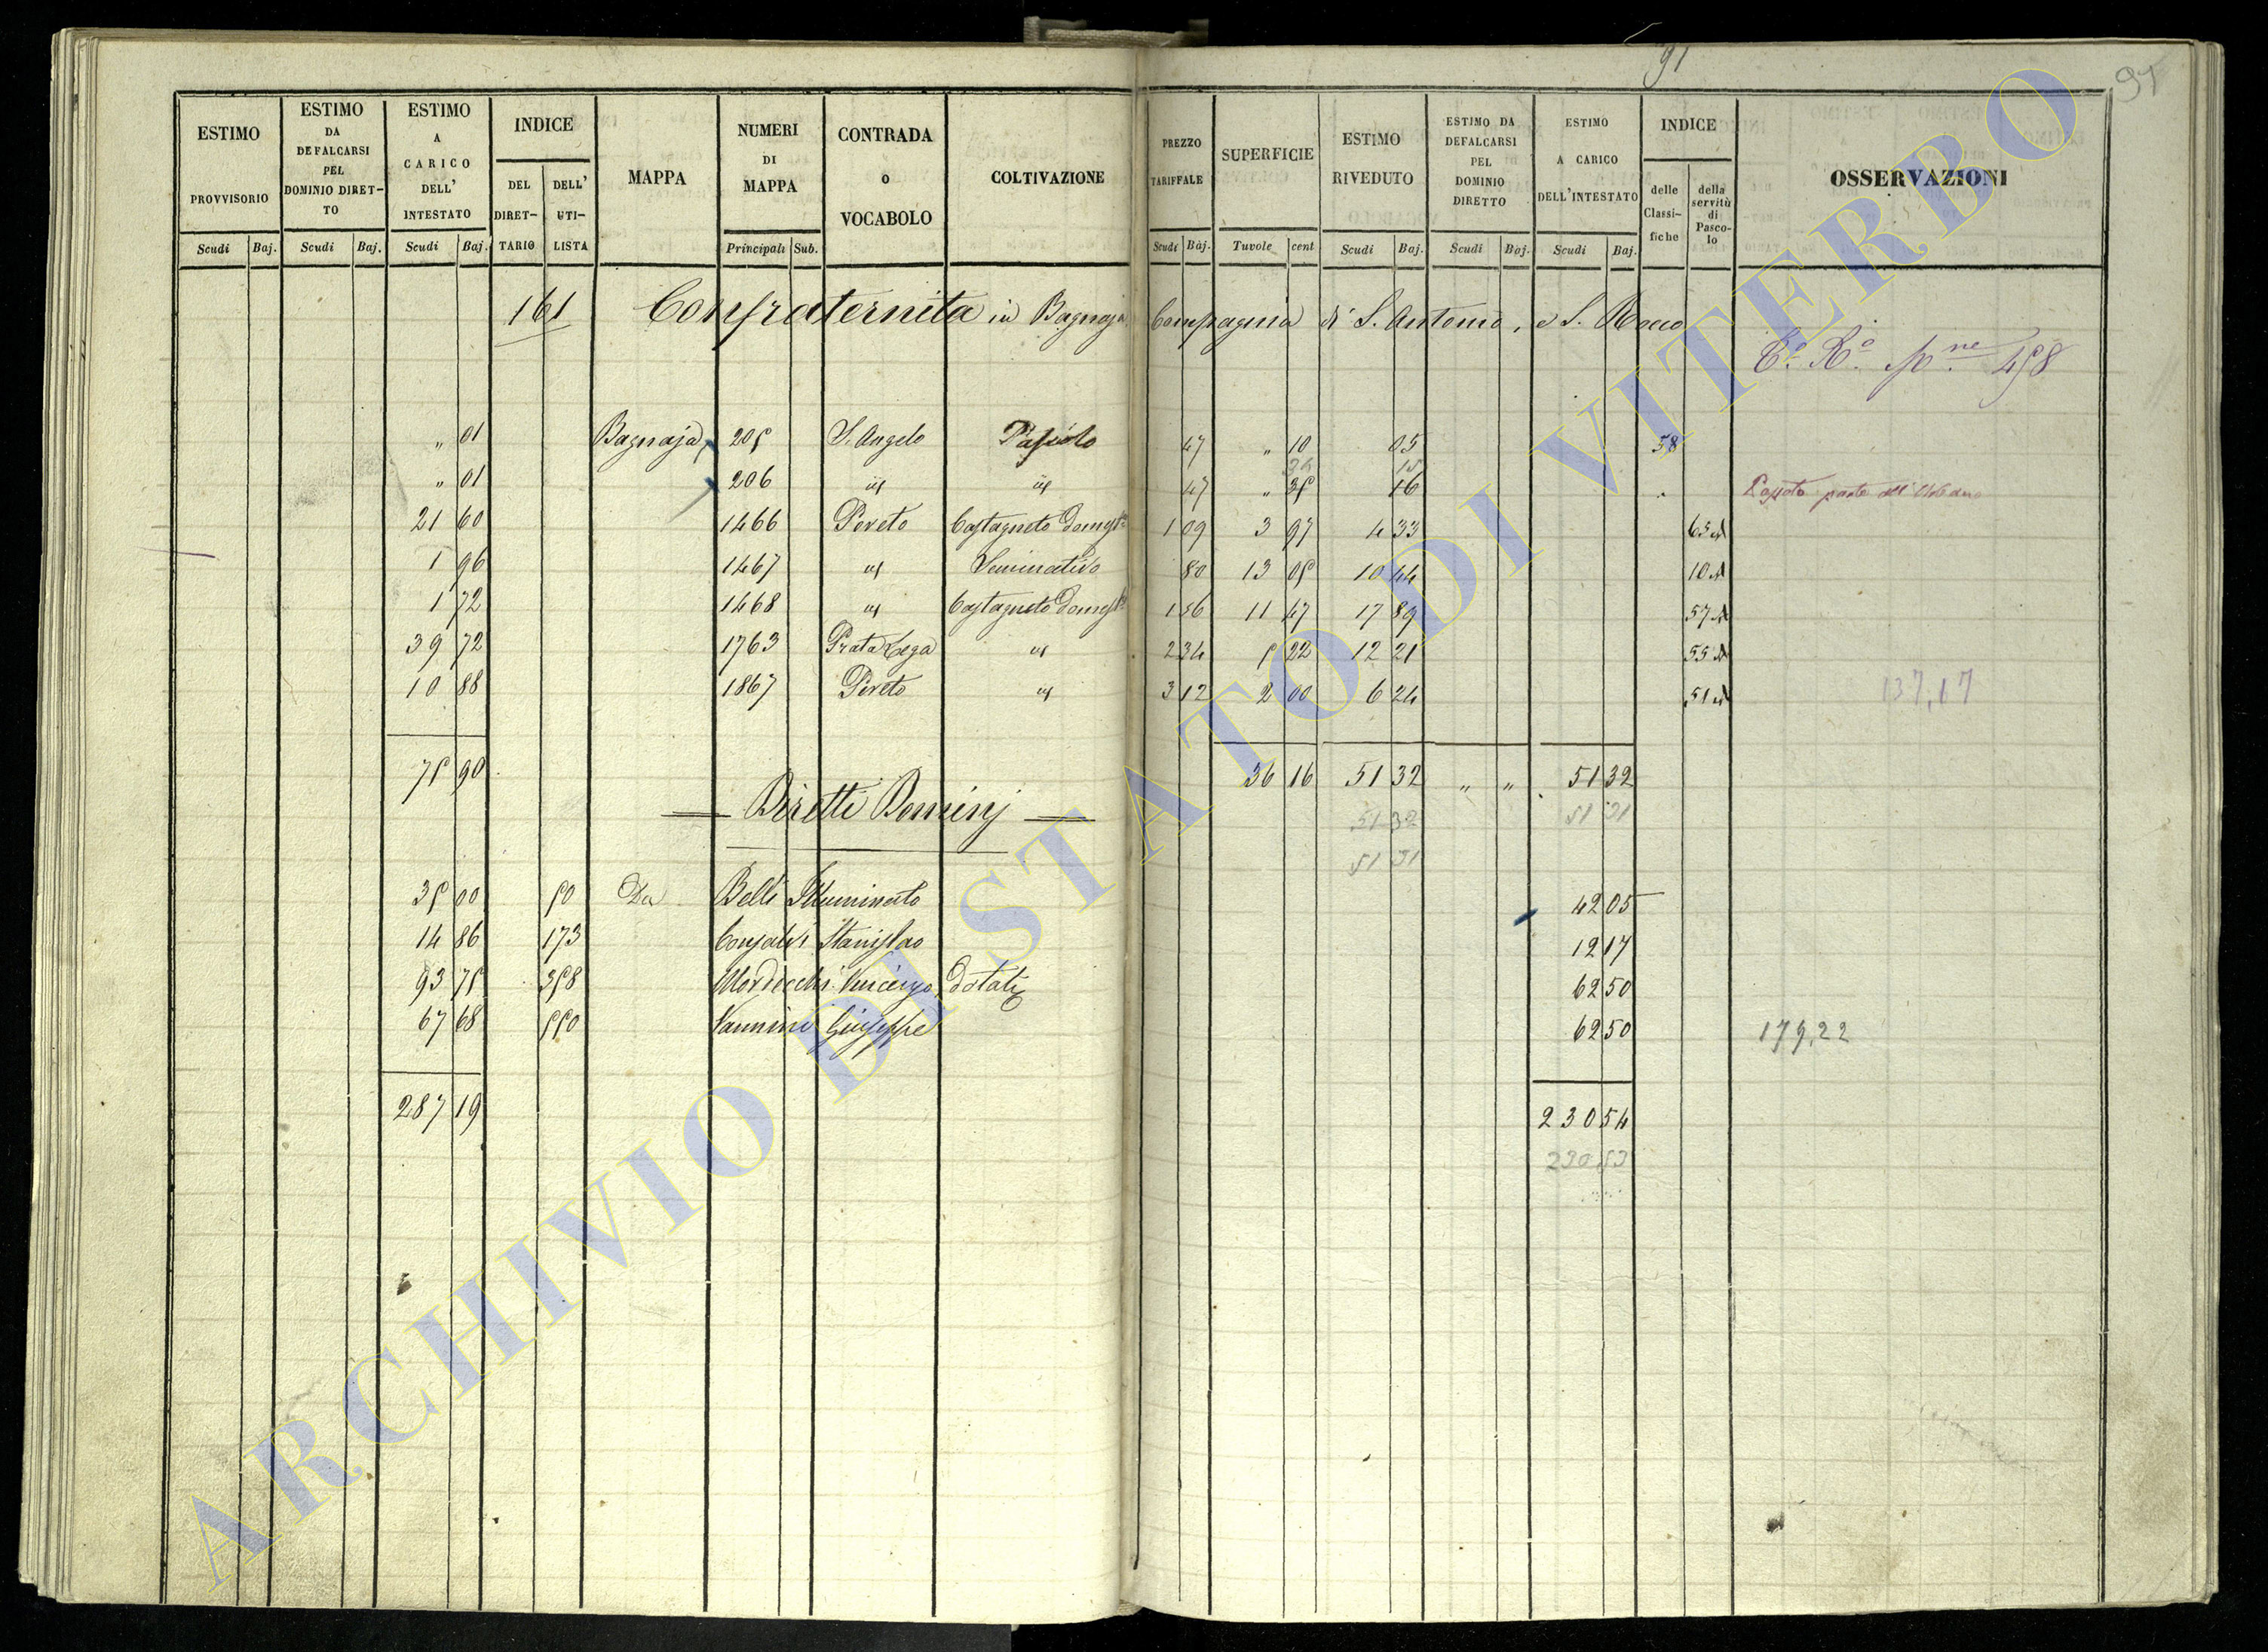 91
91
ESTIMO PROVVISORIO Scudi Baj.
ESTIMO DA DEFALCARSI PEL DOMINIO DIRETTO Scudi Baj.
ESTIMO A CARICO DELL' INTESTATO Scudi Baj.
INDICE DEL DIRETTARIO DELL' UTILISTA
MAPPA
NUMERI DI MAPPA Principali Sub.
CONTRADA o VOCABOLO
COLTIVAZIONE
PREZZO TARIFFALE Scudi Baj.
SUPERFICIE Tavole cent
ESTIMO RIVEDUTO Scudi Baj.
ESTIMO DA DEFALCARSI PEL DOMINIO DIRETTO Scudi Baj.
ESTIMO A CARICO DELL'INTESTATO Scudi Baj.
INDICE delle Classifiche della servitù di Pascolo
OSSERVAZIONI
161 Confraternita in Bagnaja Compagnia di S. Antonio, e S. Rocco
458
„ 01 Bagnaja 205 S. Angelo Pascolo 47 „ 10 05 58
34 15
„ 01 206 id id 47 „ 35 16 Passata parte all'Urbano
21 60 1466 Pereto Castagneto Domest. 1 09 3 97 4 33 65
1 96 1467 id Seminativo 80 13 05 10 44 10
1 72 1468 id Castagneto Domest. 1 56 11 47 17 89 57
39 72 1763 Prata Lega id 2 34 5 22 12 21 55
10 88 1867 Pereto id 3 12 2 00 6 24 51 137,17
75 90 36 16 51 32 „ „ 51 32
Diretti Dominj
51 32 51 31
51 31
35 00 50 Da Belli Illuminato 42 05
14 86 173 Consalvi Stanislao 12 17
93 75 358 Mordecchi Vincenzo, dotati 62 50
67 68 550 Vannini Giuseppe 62 50 179,22
287 19 230 54
230 53
ARCHIVIO DI STATO DI VITERBO